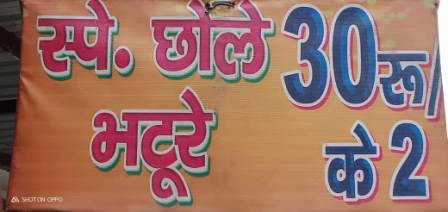 स्पे. छोले 30रू/
भटूरे के 2
SHOT ON OPPO